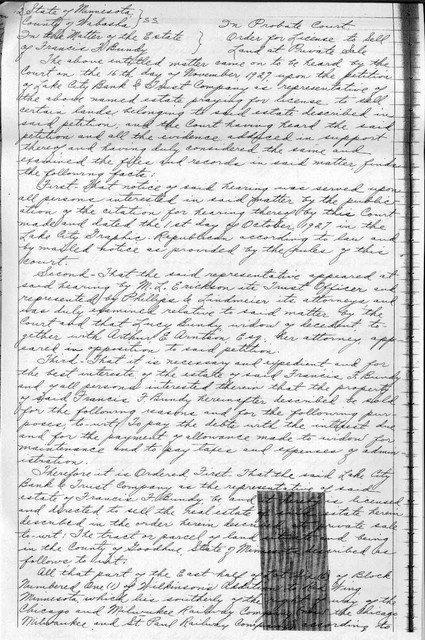 State of Minnesota,
County of Wabasha } S.S. In Probate Court.
In the Matter of the Estate } Order for License to Sell
of Francis F. Bundy Land at Private Sale
The above entitled matter came on to be heard by the
Court on the 16th day of November 1927 upon the petition
of Lake City Bank & Trust Company as representative of
the above named estate praying for license to sell
certain lands belonging to said estate described in
said petition, and the Court having heard the said
petition and all the evidence adduced in support
thereof and having duly considered the same and
examined the files and records in said matter, finds
the following facts:
First. That notice of said hearing was served upon
all persons interested in said matter by the public-
ation of the citation for hearing thereof by this Court
made and dated the 1st day of October, 1927 in the
Lake City Graphic-Republican according to law and
by mailed notice as provided by the rules of this
court.
Second - That the said representative appeared at
said hearing by M. L. Erickson its Trust Officer and
represented by Phillips & Lindmeier its attorneys and
was duly examined relative to said matter by the
Court and that Lucy Bundy widow of decedent to-
gether with Arthur E. Arntson Esq. her attorney appe-
ared in opposition to said petition.
Third - That it is necessary and expedient and for
the best interests of the estate of said Francis F. Bundy
and of all persons interested therein that the property
of said Francis F Bundy hereinafter described be sold
for the following reasons and for the following pur-
poses, to-wit: To pay the debts with the interest due
and for the payment of allowance made to widow for
maintenance and to pay taxes and expenses of admin-
istration.
Therefore it is Ordered First. That the said Lake City
Bank & Trust Company as the representative
estate of Francis F. Bundy be and is licensed
and directed to sell the real estate estate herein
described in the order herein described at private sale
to-wit: The tract or parcel of land and being
in the County of Goodhue, State of Minnesota described as
follows to-wit:
All that part of the East half of of Block
Numbered One (1) of Wilkinson's Addition to Red Wing
Minnesota which lies southerly of the way of the
Chicago and Milwaukee Railway Company the Chicago
Milwaukee and St Paul Railway Company according to